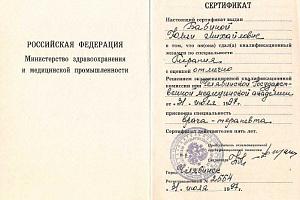 РОССИЙСКАЯ ФЕДЕРАЦИЯ
Министерство здравоохранения
и медицинской промышленности
СЕРТИФИКАТ
Настоящий сертификат выдан
Бабиной
Ольги Михайловне
в том, что он(она) сдал(а) квалификационный
экзамен по специальности
Терапия
с оценкой отлично
Решением экзаменационной квалификационной
комиссии при Челябинской Государст-
венной медицинской академии
от 31 июля 1997г.
присвоена специальность
врача-терапевта
Сертификат действителен пять лет.
Председатель экзаменационной
квалификационной комиссии
Секретарь
Город Челябинск
Регистрационный №
31 июля 1997г.